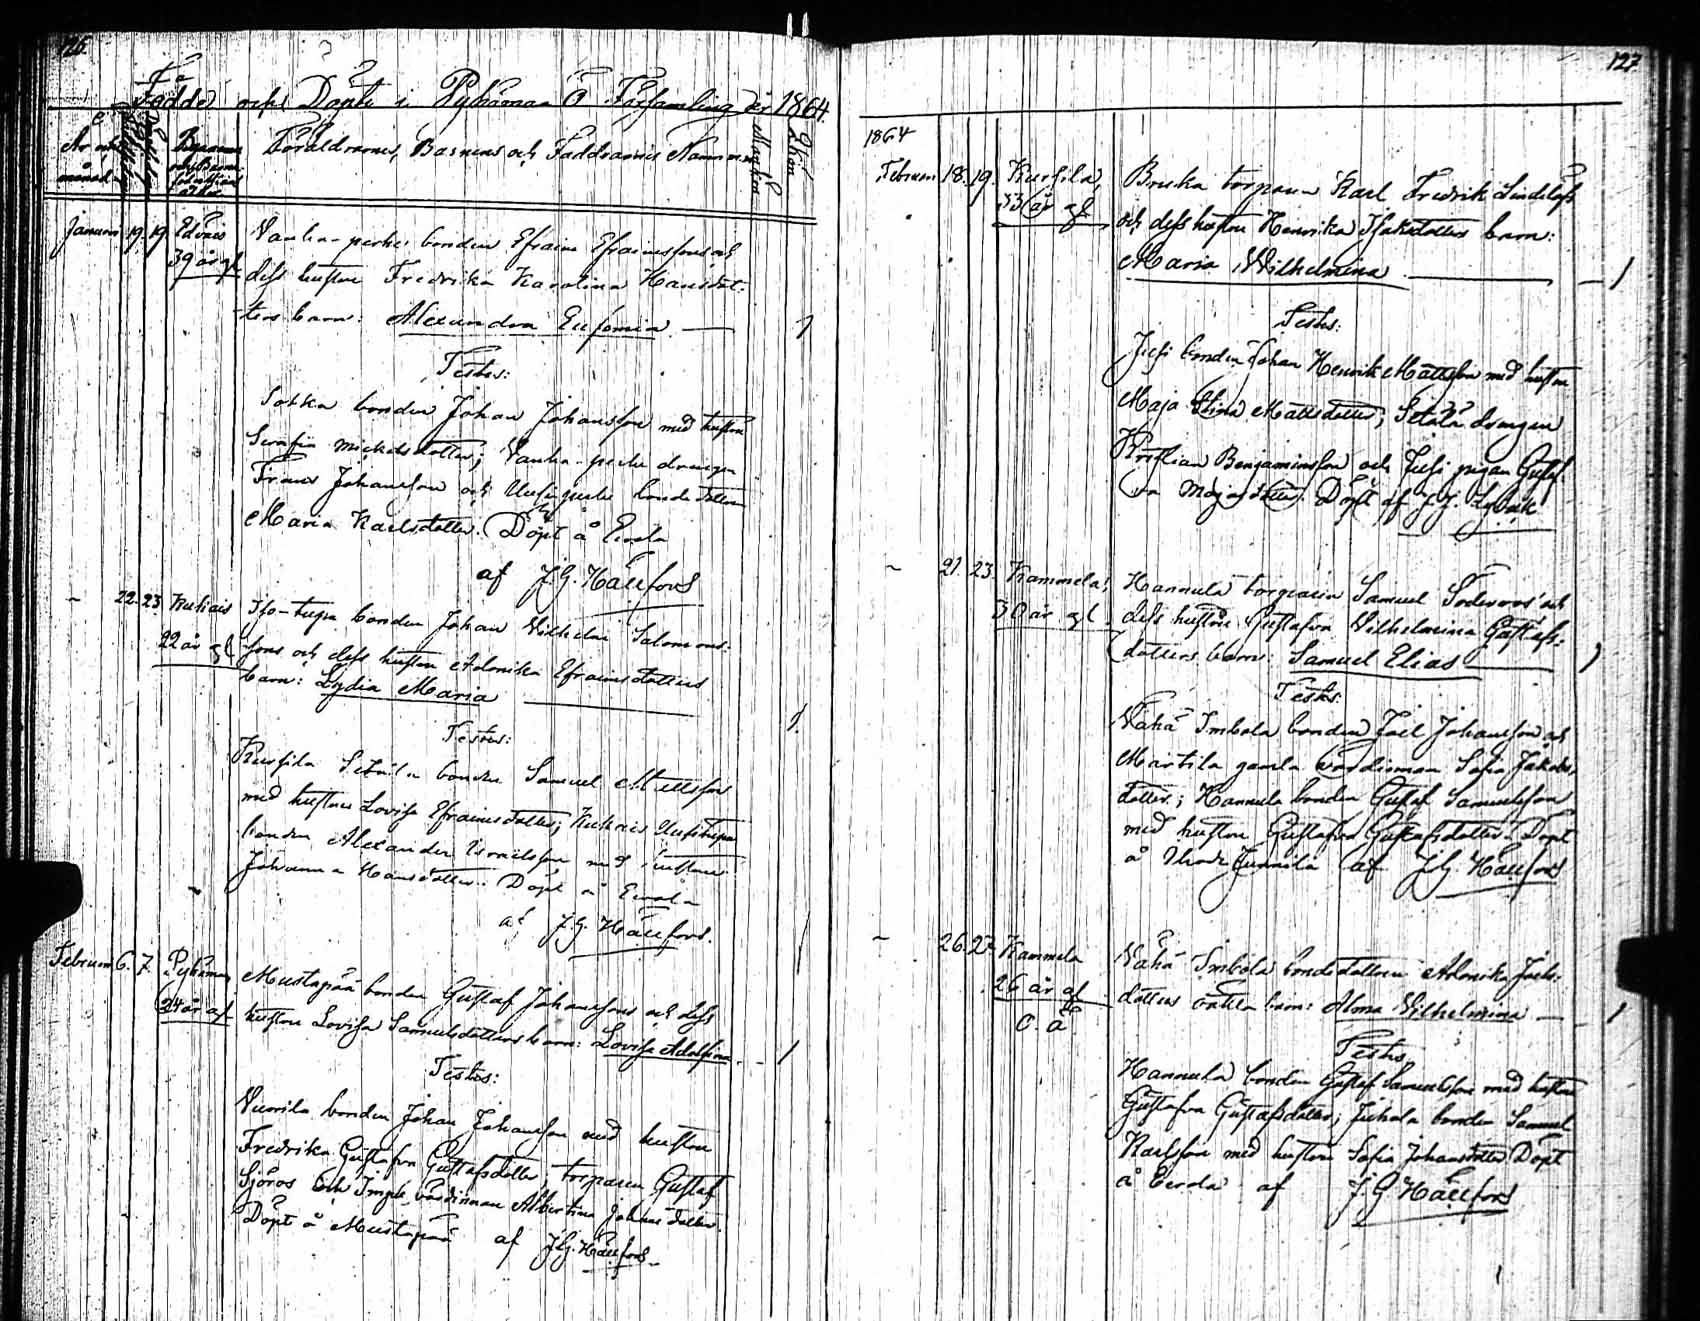 126.
Födde och Döpte i Pyhämaa Ö Församling år 1864.
År och månad
Föräldrarnes, Barnens och Faddrarnes Namn
Mankön
Qkön
Januari 19. 19. Edväis Vanha-perhe bonden Efraim Efraimssons och
39 år gl dess hustru Fredrika Karolina Hansdot-
ters barn: Alexandra Eufemia 1
Testes:
Sorkka bonden Johan Johansson med hustru
Serafia Mickelsdotter; Vanha-perhe drengen
Frans Johansson och Uusi perhe bondedottern
Maria Karlsdotter. Döpt å
af J.G. Hällfors
22. 23. Kukais Iso-tupa bonden Johan Vilhelm Salomons-
22 år gl sons och dess hustru Adamika Efraimsdotters
barn: Lydia Maria 1.
Testes:
Kursila Seteila bonden Samuel Mattsson
med hustru Lovisa Efraimsdotter; Kukais Uusitupa
bonden Alexander Israelsson med hustru
Johanna Hansdotter. Döpt å
af J.G. Hällfors.
Februari 6. 7. Pyhämaa Mustapää bonden Gustaf Johanssons och dess
24 år gl hustru Lovisa Samuelsdotters barn: Lovisa Adolfina 1
Testes:
Vuorila bonden Johan Johansson med hustru
Fredrika Gustafva Gustafsdotter, torparen Gustaf
Sjöros och Albertina Johansdotter.
Döpt å Mustapää af J.G. Hällfors
127
1864
Februari 18. 19. Kursila, Bruka torparen Karl Fredrik Lindelöfs
33 år gl och dess hustru Henrika Isaksdotters barn:
Maria Wilhelmina 1
Testes:
Jussi bonden Johan Henrik Mattsson med hustru
Maja Stina Mattsdotter; Setälä drengen
Kristian Benjaminsson och Jussi pigan Gustaf-
va Majasdotter. Döpt af J.J. Lybäck
21. 23. Kammela, Hannula torparen Samuel Söderroos' och
30 år gl. dess hustru Gustafva Wilhelmina Gustafs-
dotters barn: Samuel Elias 1
Testes:
Vähä Imbola bonden Joel Johansson och
Martila gamla värdinnan Sofia Jakobs-
dotter; Hannula bonden Gustaf Samuelsson
med hustru Gustafva Gustafsdotter. Döpt
å af J.G. Hällfors
26. 27. Kammela Vähä Imbola bondedottern Adamika Joels-
26 år gl dotters oäkta barn: Alma Wilhelmina 1
O. Ä
Testes
Hannula bonden Gustaf Samuelsson med hustru
Gustafva Gustafsdotter; Juhola bonden Samuel
Karlsson med hustru Sofia Johansdotter. Döpt
å af J.G. Hällfors